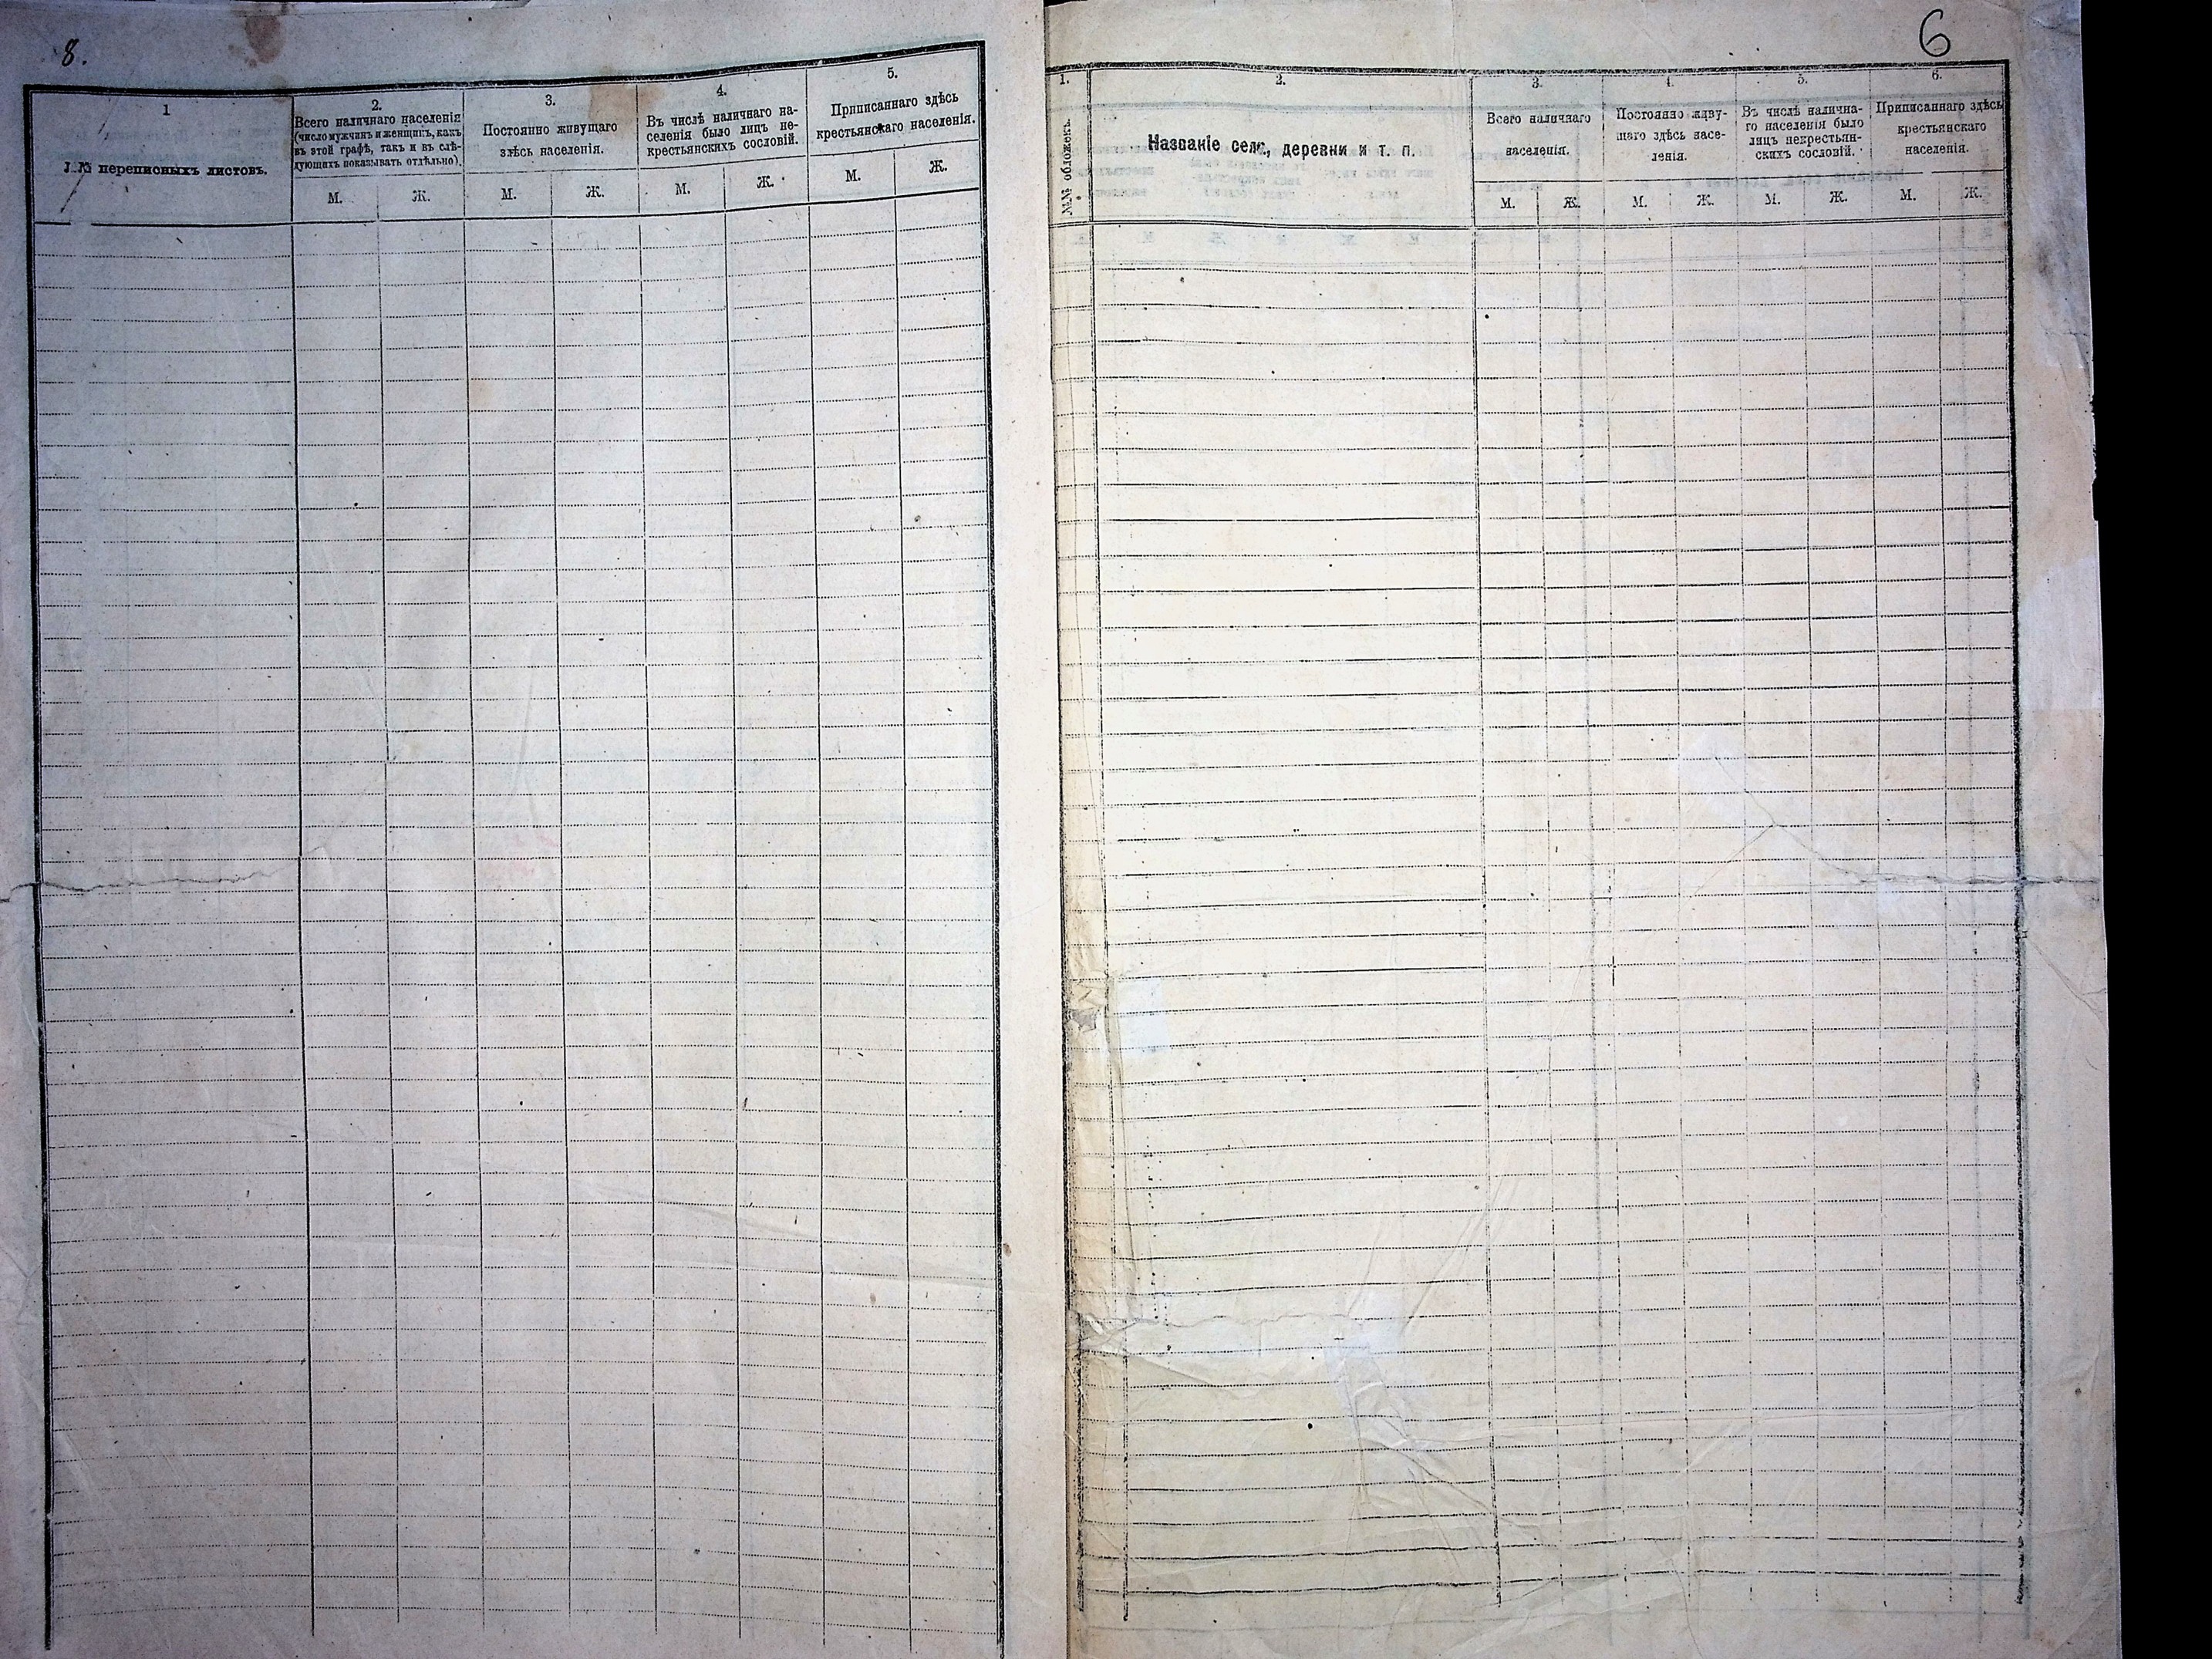 8.
1
№№ переписныхъ листовъ.
2.
Всего наличнаго населенія
(число мужчинъ и женщинъ, какъ
въ этой графѣ, такъ и въ слѣ-
дующихъ показывать отдѣльно).
М. Ж.
3.
Постоянно живущаго
здѣсь населенія.
М. Ж.
4.
Въ числѣ наличнаго на-
селенія было лицъ не-
крестьянскихъ сословій.
М. Ж.
5.
Приписаннаго здѣсь
крестьянскаго населенія.
М. Ж.
6
1.
№№ обложекъ.
2.
Названіе села, деревни и т. п.
3.
Всего наличнаго
населенія.
М. Ж.
4.
Постоянно живу-
щаго здѣсь насе-
ленія.
М. Ж.
5.
Въ числѣ налична-
го населенія было
лицъ некрестьян-
скихъ сословій.
М. Ж.
6.
Приписаннаго здѣсь
крестьянскаго
населенія.
М. Ж.